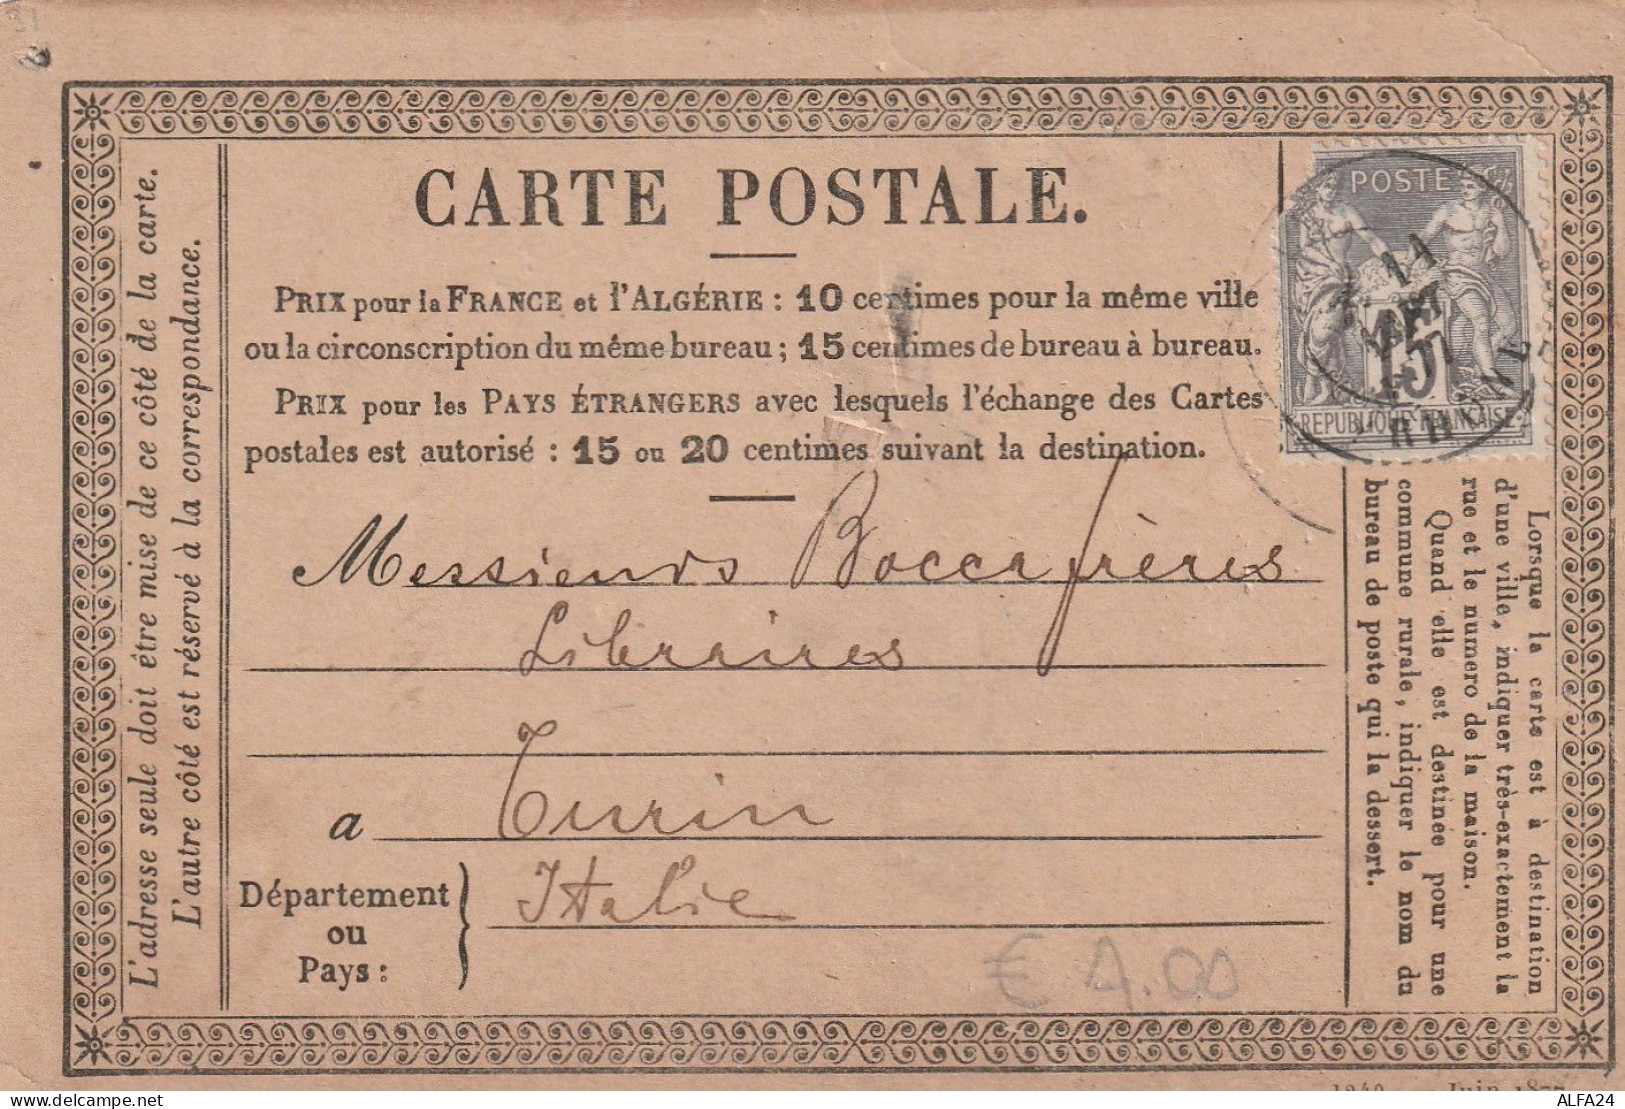 CARTE POSTALE.
PRIX pour la FRANCE et l'ALGÉRIE : 10 centimes pour la même ville
ou la circonscription du même bureau ; 15 centimes de bureau à bureau.
PRIX pour les PAYS ÉTRANGERS avec lesquels l'échange des Cartes
postales est autorisé : 15 ou 20 centimes suivant la destination.
Messieurs Bocca frères
Libraires
a Turin
Département
ou
Pays :
Italie
L'adresse seule doit être mise de ce côté de la carte.
L'autre côté est réservé à la correspondance.
POSTE
15
REPUBLIQUE FRANÇAISE
Lorsque la carte est à destination
d'une ville, indiquer très-exactement la
rue et le numero de la maison.
Quand elle est destinée pour une
commune rurale, indiquer le nom du
bureau de poste qui la dessert.
€ 4.00
Juin 1877
ALFA24